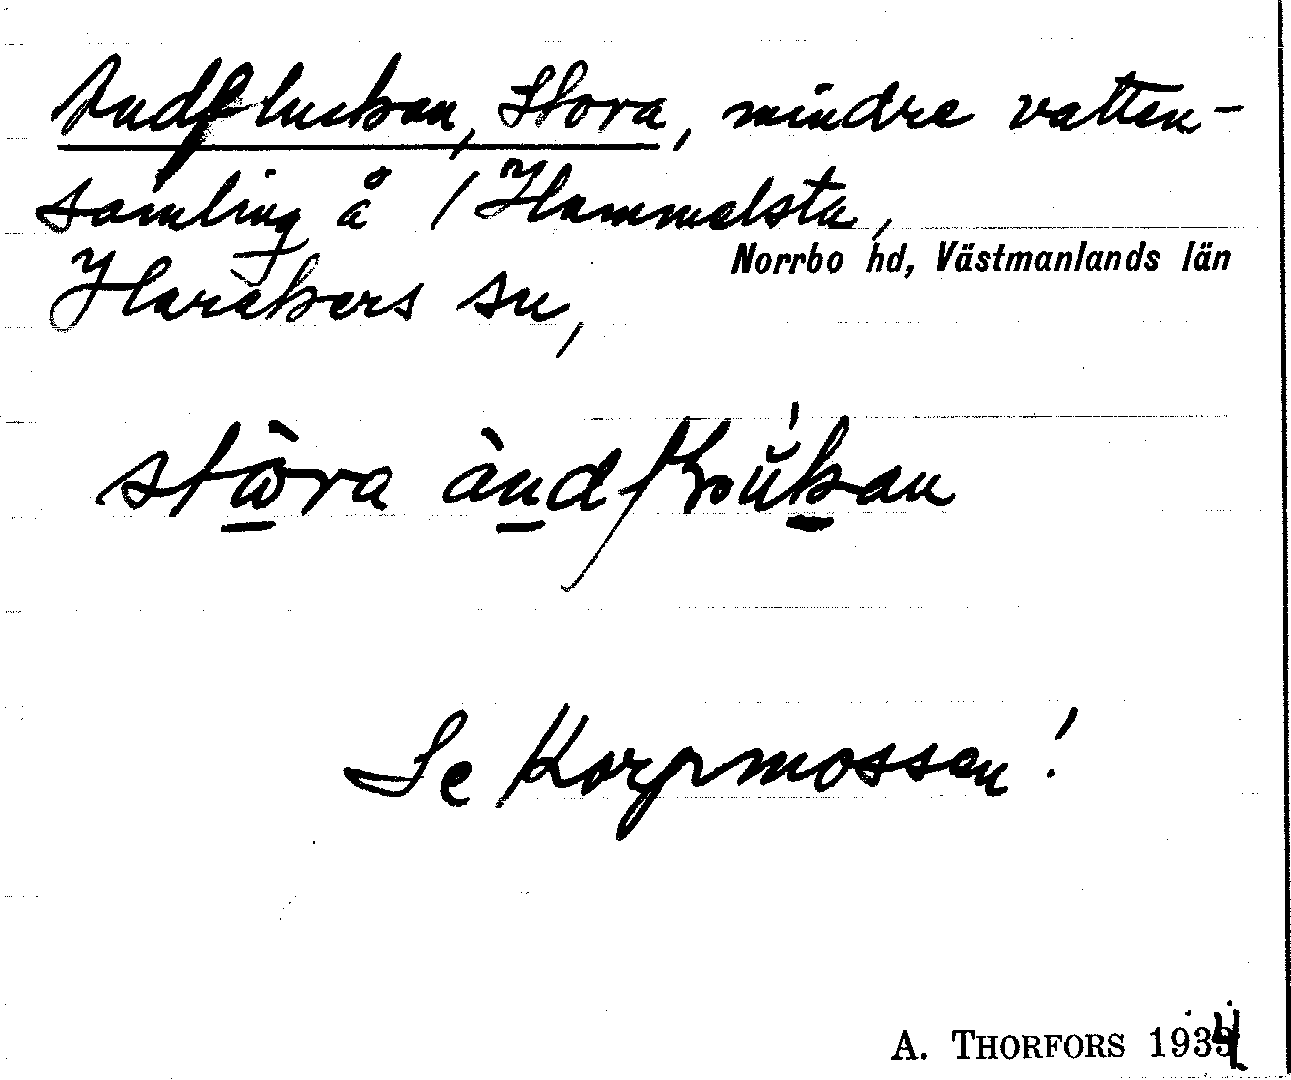 Andfluckan, Stora, mindre vatten-
samling å / Hammelsta,
Norrbo hd, Västmanlands län
Harakers sn,
stora
Se Korpmossen!
A. THORFORS 1934